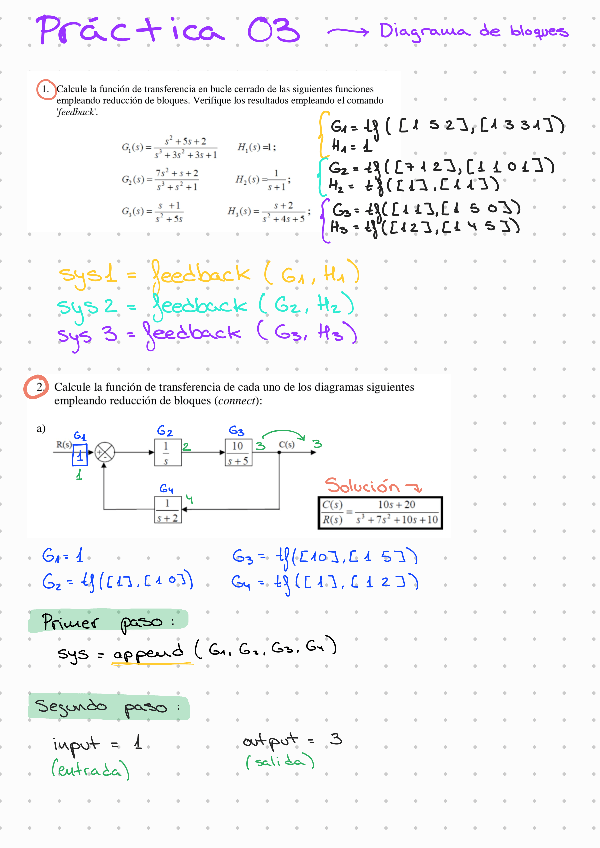 Práctica 03 → Diagrama de bloques
1. Calcule la función de transferencia en bucle cerrado de las siguientes funciones
empleando reducción de bloques. Verifique los resultados empleando el comando
'feedback'.
G₁(s) = (s²+5s+2)/(s³+3s²+3s+1) H₁(s)=1;
G₂(s) = (7s²+s+2)/(s³+s²+1) H₂(s) = 1/(s+1);
G₃(s) = (s+1)/(s²+5s) H₃(s) = (s+2)/(s²+4s+5);
G₁ = tf([1 5 2],[1 3 3 1])
H₁ = 1
G₂ = tf([7 1 2],[1 1 0 1])
H₂ = tf([1],[1 1])
G₃ = tf([1 1],[1 5 0])
H₃ = tf([12],[1 4 5])
sys1 = feedback (G₁, H₁)
sys2 = feedback (G₂, H₂)
sys 3 = feedback (G₃, H₃)
2. Calcule la función de transferencia de cada uno de los diagramas siguientes
empleando reducción de bloques (connect):
a)
G₁ G₂ G₃
R(s) 1 1/s 2 10/(s+5) 3 C(s) 3
1
G₄
1/(s+2) 4
Solución
C(s)/R(s) = (10s+20)/(s³+7s²+10s+10)
G₁ = 1 G₃ = tf([10],[1 5])
G₂ = tf([1],[1 0]) G₄ = tf([1],[1 2])
Primer paso:
sys = append (G₁, G₂, G₃, G₄)
Segundo paso:
input = 1 output = 3
(entrada) (salida)